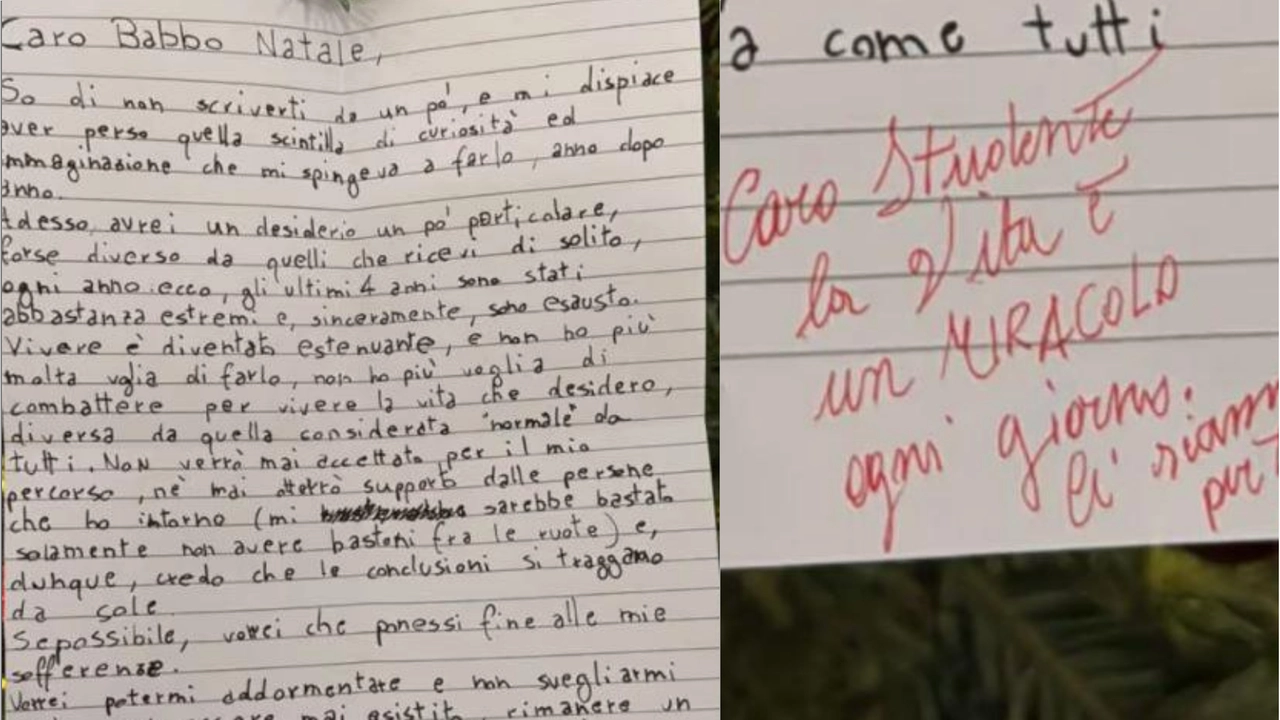 Caro Babbo Natale,
So di non scriverti da un pò, e mi dispiace
aver perso quella scintilla di curiosità ed
immaginazione che mi spingeva a farlo, anno dopo
anno.
Adesso, avrei un desiderio un pò particolare,
forse diverso da quelli che ricevi di solito,
ogni anno: ecco, gli ultimi 4 anni sono stati
abbastanza estremi e, sinceramente, sono esausto.
Vivere è diventato estenuante, e non ho più
molta voglia di farlo, non ho più voglia di
combattere per vivere la vita che desidero,
diversa da quella considerata "normale" da
tutti. Non verrò mai accettato per il mio
percorso, nè mai otterrò supporto dalle persone
che ho intorno (mi sarebbe bastato
solamente non avere bastoni fra le ruote) e,
dunque, credo che le conclusioni si traggano
da sole.
Se possibile, vorrei che ponessi fine alle mie
sofferenze.
Vorrei potermi addormentare e non svegliarmi
mai esistito, rimanere un
a come tutti
Caro Studente
la Vita è
un MIRACOLO
ogni giorno.